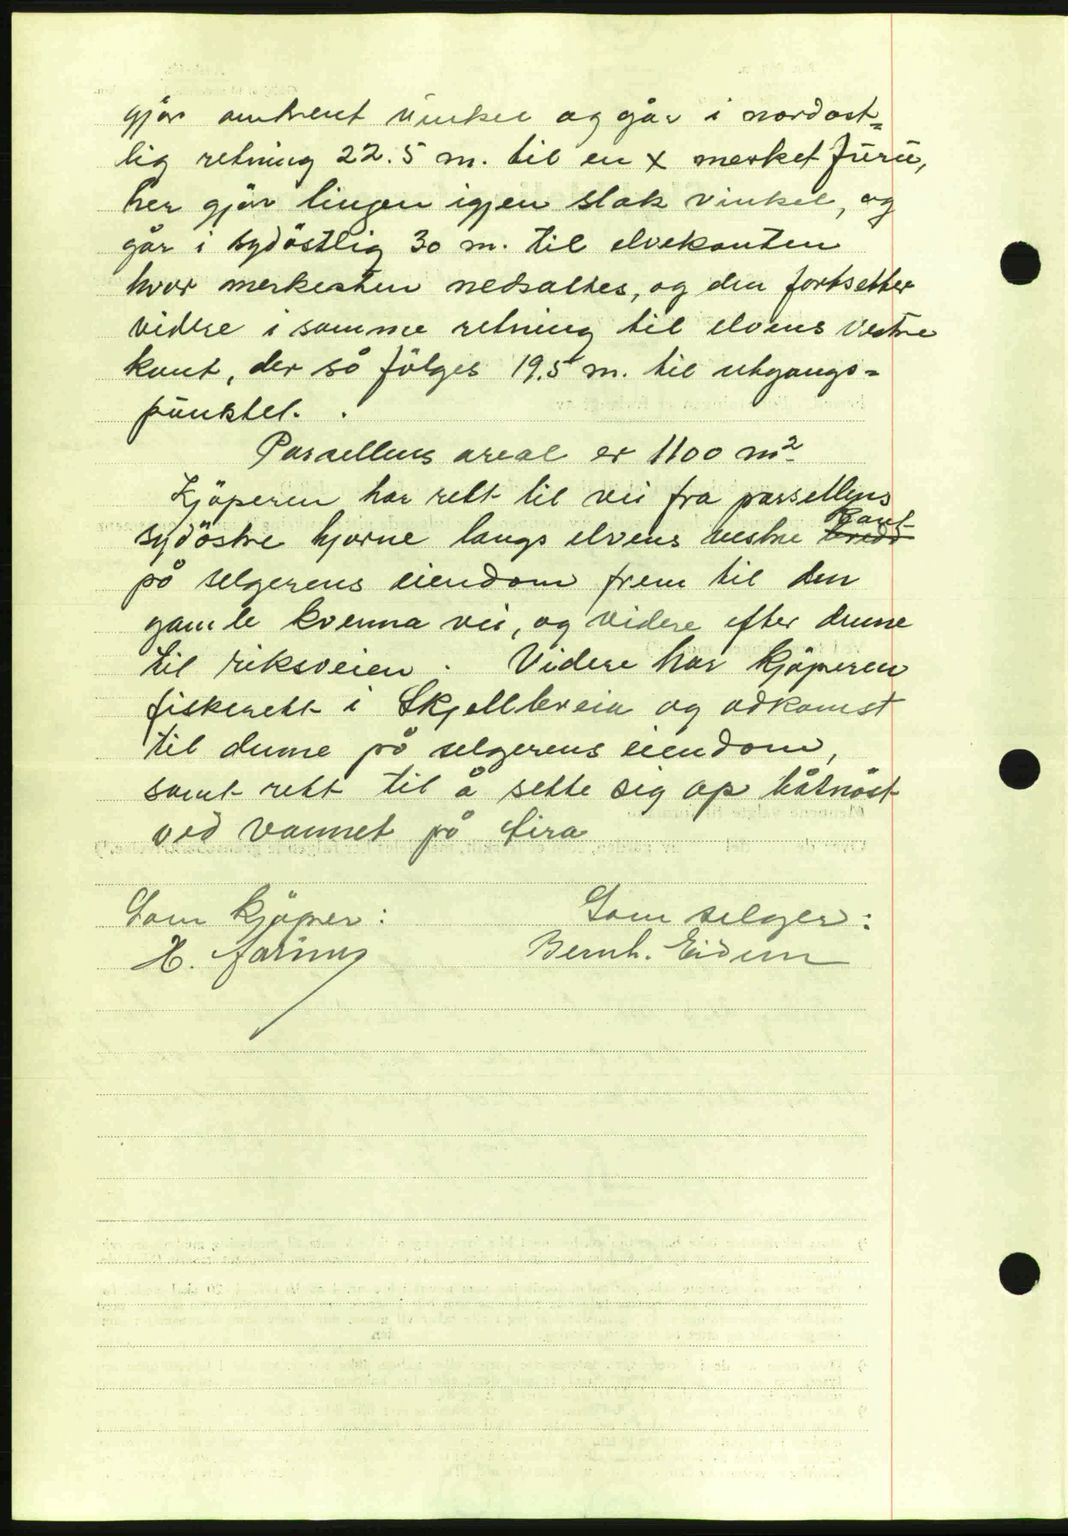 gjör omtrent vinkel og går i nordost=
lig retning 22.5 m. til en x merket furu,
her gjör linjen igjen slak vinkel, og
går i sydöstlig 30 m. til elvekanten
hvor merkesten nedsattes, og den fortsetter
videre i samme retning til elvens vestre
kant, der så fölges 19.5 m. til utgangs=
punktet.
Parsellens areal er 1100 m².
Kjöperen har rett til vei fra parsellens
sydöstre hjörne langs elvens vestre bredd kant
på selgerens eiendom frem til den
gamle kvenna vei, og videre efter denne
til riksveien. Videre har kjöperen
fiskerett i Skjellbreia og adkomst
til denne på selgerens eiendom,
samt rett til å sette sig op båtnöst
ved vannet på
Som kjöper: Som selger:
H. Bernh. Eidem